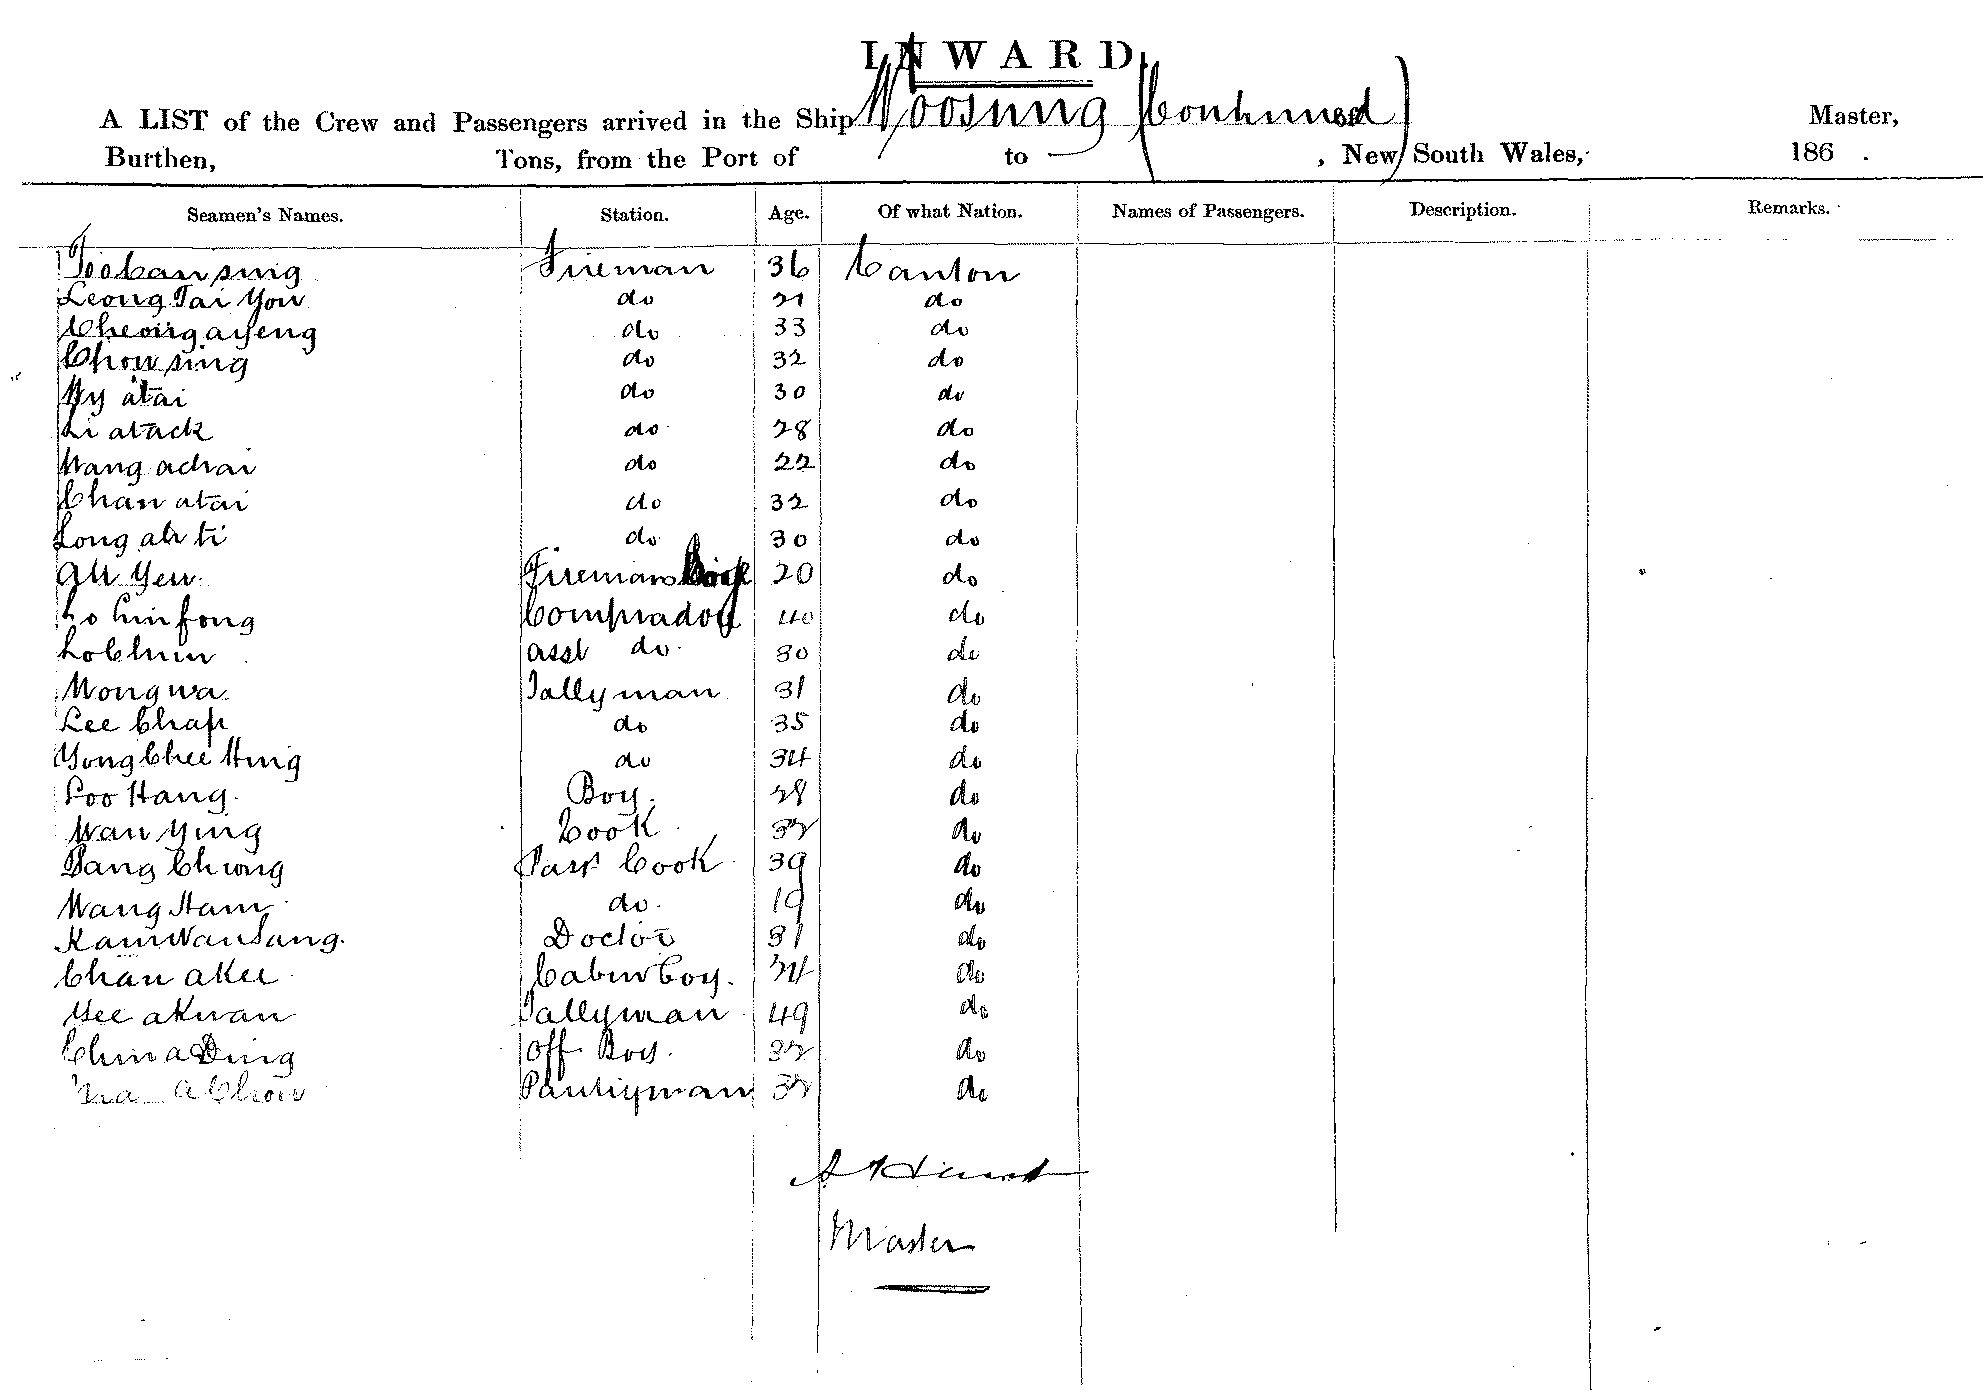 INWARD.
A LIST of the Crew and Passengers arrived in the Ship Woosung (Continued) Master,
Burthen, Tons, from the Port of to , New South Wales, 186 .
Seamen's Names. Station. Age. Of what Nation. Names of Passengers. Description. Remarks.
Fireman 36 Canton
Leong Tai You do 21 do
Cheong ayeng do 33 do
Chow sing do 32 do
Ny atai do 30 do
Li atack do 28 do
Wang achai do 22 do
Chan atai do 32 do
Long ah ti do 30 do
Ah Yew Firemans 20 do
Lo Chin fong Compradov 40 do
Lo Chun asst do 30 do
Wong wa Tallyman 31 do
Lee Chap do 35 do
Yong Chee Hing do 34 do
Loo Hang Boy. 28 do
Wan Ying Cook 32 do
Tang Chong Pass Cook 39 do
Wang Ham do 19 do
Kam Wan Sang. Doctor 31 do
Chan akee Cabin boy. do
Yee akwan Tallyman 49 do
China Ding Off Boy. 32 do
A Chow Pantryman 32 do
Master